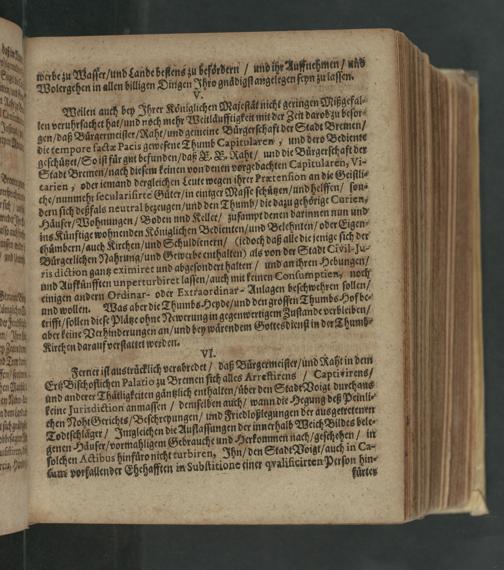 werbe zu Wasser/ und Lande bestens zu befördern / und ihr Auffnehmen / und
Wolergehen in allen billigen Dingen Ihro gnädigst angelegen seyn zu lassen.
V.
Weilen auch bey Ihrer Königlichen Majestät nicht geringen Mißgefal-
len veruhrsachet hat/ und noch mehr Weitläufftigkeit mit der Zeit darob zu besor-
gen/ daß Bürgermeister/ Raht/ und gemeine Bürgerschafft der Stadt Bremen/
die tempore factæ Pacis gewesene Thumb Capitularen, und dero Bediente
geschützet/ So ist für gut befunden/ daß E. E. Raht / und die Bürgerschafft der
Stadt Bremen/ nach diesem keinen von denen vorgedachten Capitularen, Vi-
carien, oder jemand dergleichen Leute wegen ihrer Prætension an die Geistli-
che/ nunmehr secularisirte Güter/ in einiger Masse schützen/ und helffen/ son-
dern sich deßfals neutral bezeugen/ und den Thumb/ die dazu gehörige Curien,
Häuser/ Wohnungen/ Boden und Keller/ zusampt denen darinnen nun und
ins Künftige wohnenden Königlichen Bedienten/ und Belehnten/ oder Eigen-
thümbern/ auch Kirchen/ und Schuldienern/ (jedoch daß alle die jenige sich der
Bürgerlichen Nahrung/ und Gewerbe enthalten) als von der Stadt Civil-Ju-
risdiction gantz eximiret und abgesondert halten / und an ihren Hebungen/
und Aufkünfften unperturbiret lassen/ auch mit keinen Consumptien, noch
einigen andern Ordinar- oder Extraordinar- Anlagen beschwehren sollen/
und wollen. Was aber die Thumbs-Heyde/ und den grossen Thumbs-Hof be-
trifft/ sollen diese Plätze ohne Newerung in gegenwertigem Zustande verbleiben/
aber keine Verhinderungen an/ und bey wärendem Gottesdienst in der Thumb-
Kirchen darauf verstattet werden.
VI.
Ferner ist austrücklich verabredet / daß Bürgermeister/ und Raht in dem
Ertz Bischoflichen Palatio zu Bremen sich alles Arrestirens / Captivirens/
und anderer Thätligkeiten gäntzlich enthalten/ über den Stadt Voigt durchaus
keine Jurisdiction anmassen / demselben auch/ wann die Hegung deß Peinli-
chen Noht Gerichts/ Beschreyungen/ und Friedloßlegungen der ausgetretenen
Todtschläger/ Jungleichen die Auflassungen der innerhalb Weich Bildes bele-
genen Häuser/ vormahligem Gebrauche und Herkommen nach/ geschehen/ in
solchen Actibus hinfüro nicht turbiren, Ihn/ den Stadt Voigt/ auch in Ca-
sum vorfallender Ehehafften in Substitione einer qvalificirten Person hin-
fürter